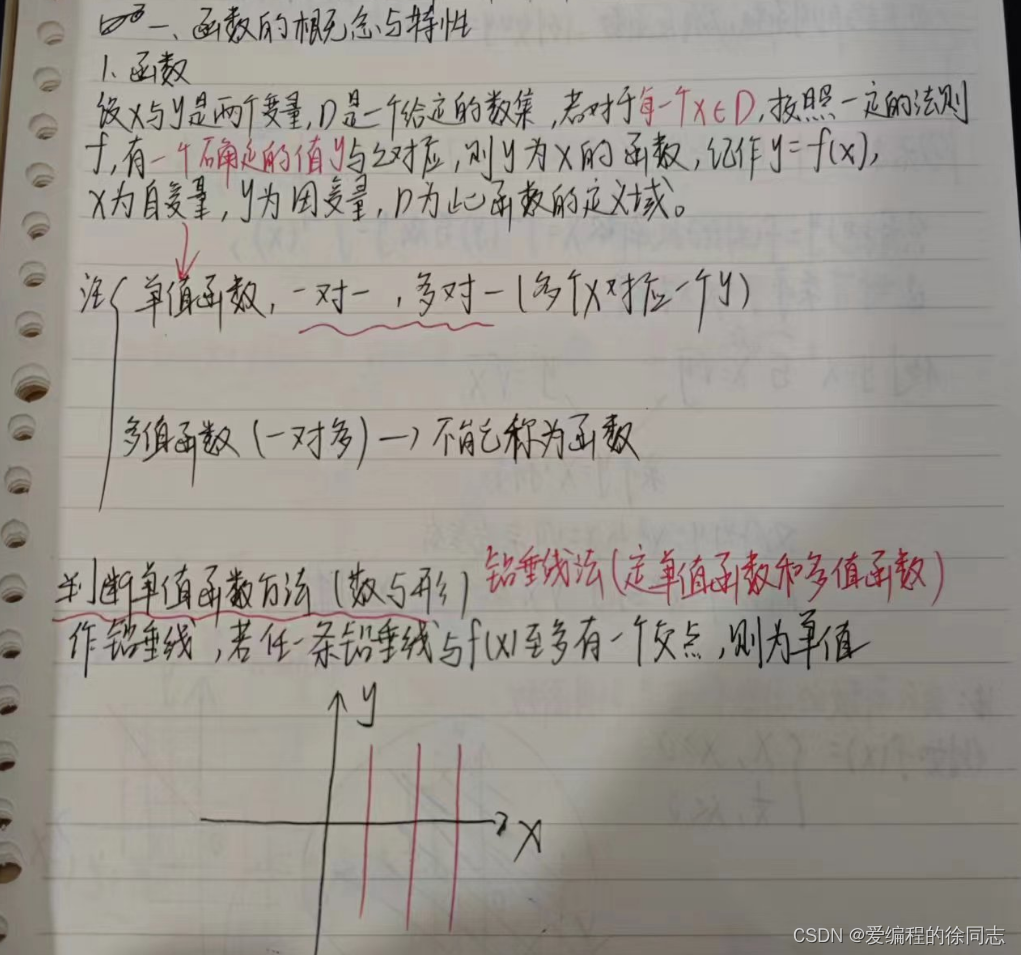 一、函数的概念与特性
1. 函数
设x与y是两个变量,D是一个给定的数集,若对于每一个x∈D,按照一定的法则
f,有一个确定的值y与之对应,则y为x的函数,记作y=f(x),
x为自变量,y为因变量,D为此函数的定义域。
注{ 单值函数,一对一,多对一(多个x对应一个y)
多值函数(一对多)→不能称为函数
判断单值函数方法(数与形) 铅垂线法(定单值函数和多值函数)
作铅垂线,若任一条铅垂线与f(x)至多有一个交点,则为单值
y
x
CSDN @爱编程的徐同志